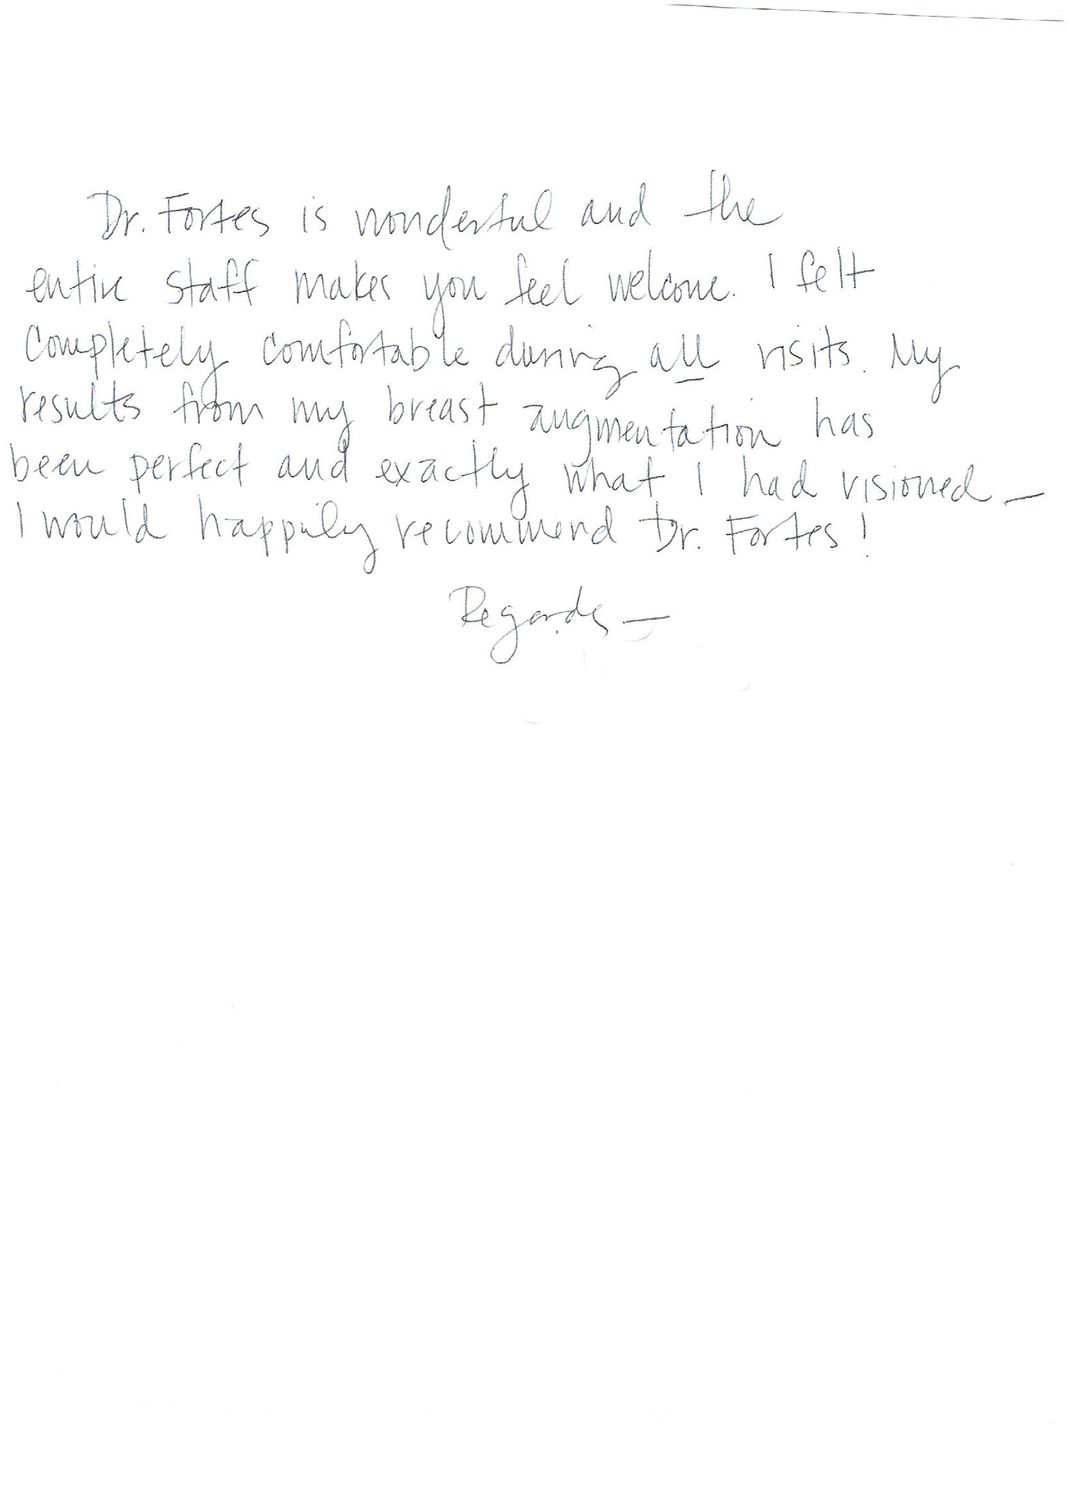 Dr. Fortes is wonderful and the
entire staff makes you feel welcome. I felt
Completely comfortable during all visits. My
results from my breast augmentation has
been perfect and exactly what I had visioned —
I would happily recommend Dr. Fortes!
Regards —